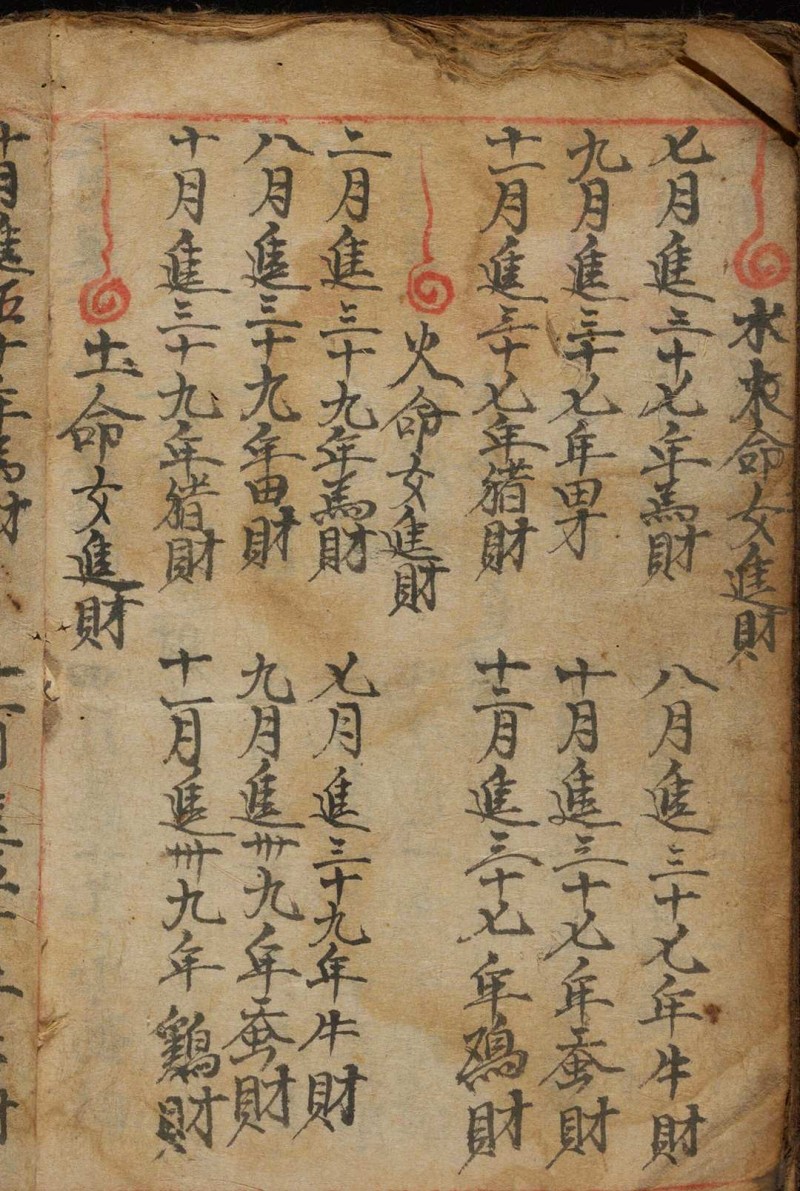 水木命女進財
七月進三十七年馬財 八月進三十七年牛財
九月進三十七年田才 十月進三十七年蚕財
十一月進三十七年猪財 十二月進三十七年鸡財
火命女進財
二月進三十九年馬財 七月進三十九年牛財
八月進三十九年田財 九月進卅九年蚕財
十月進三十九年猪財 十一月進卅九年鷄財
土命女進財
十月進五十年馬財